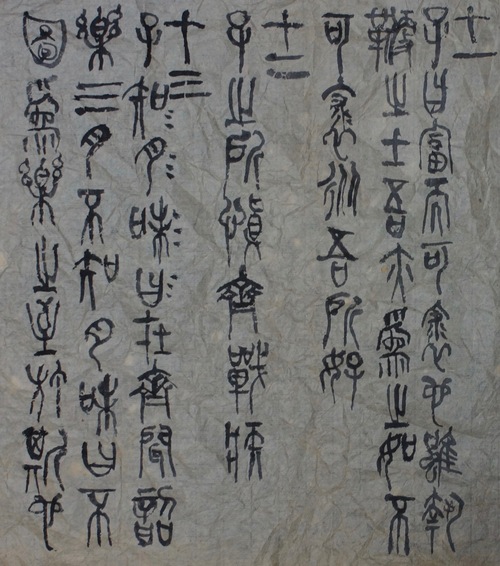 十一
子曰富而可求也雖執
鞭之士吾亦為之如不
可求從吾所好
十二
子之所慎齊戰疾
十三
子知肉味曰在齊聞韶
樂三月不知肉味曰不
圖為樂之至於斯也